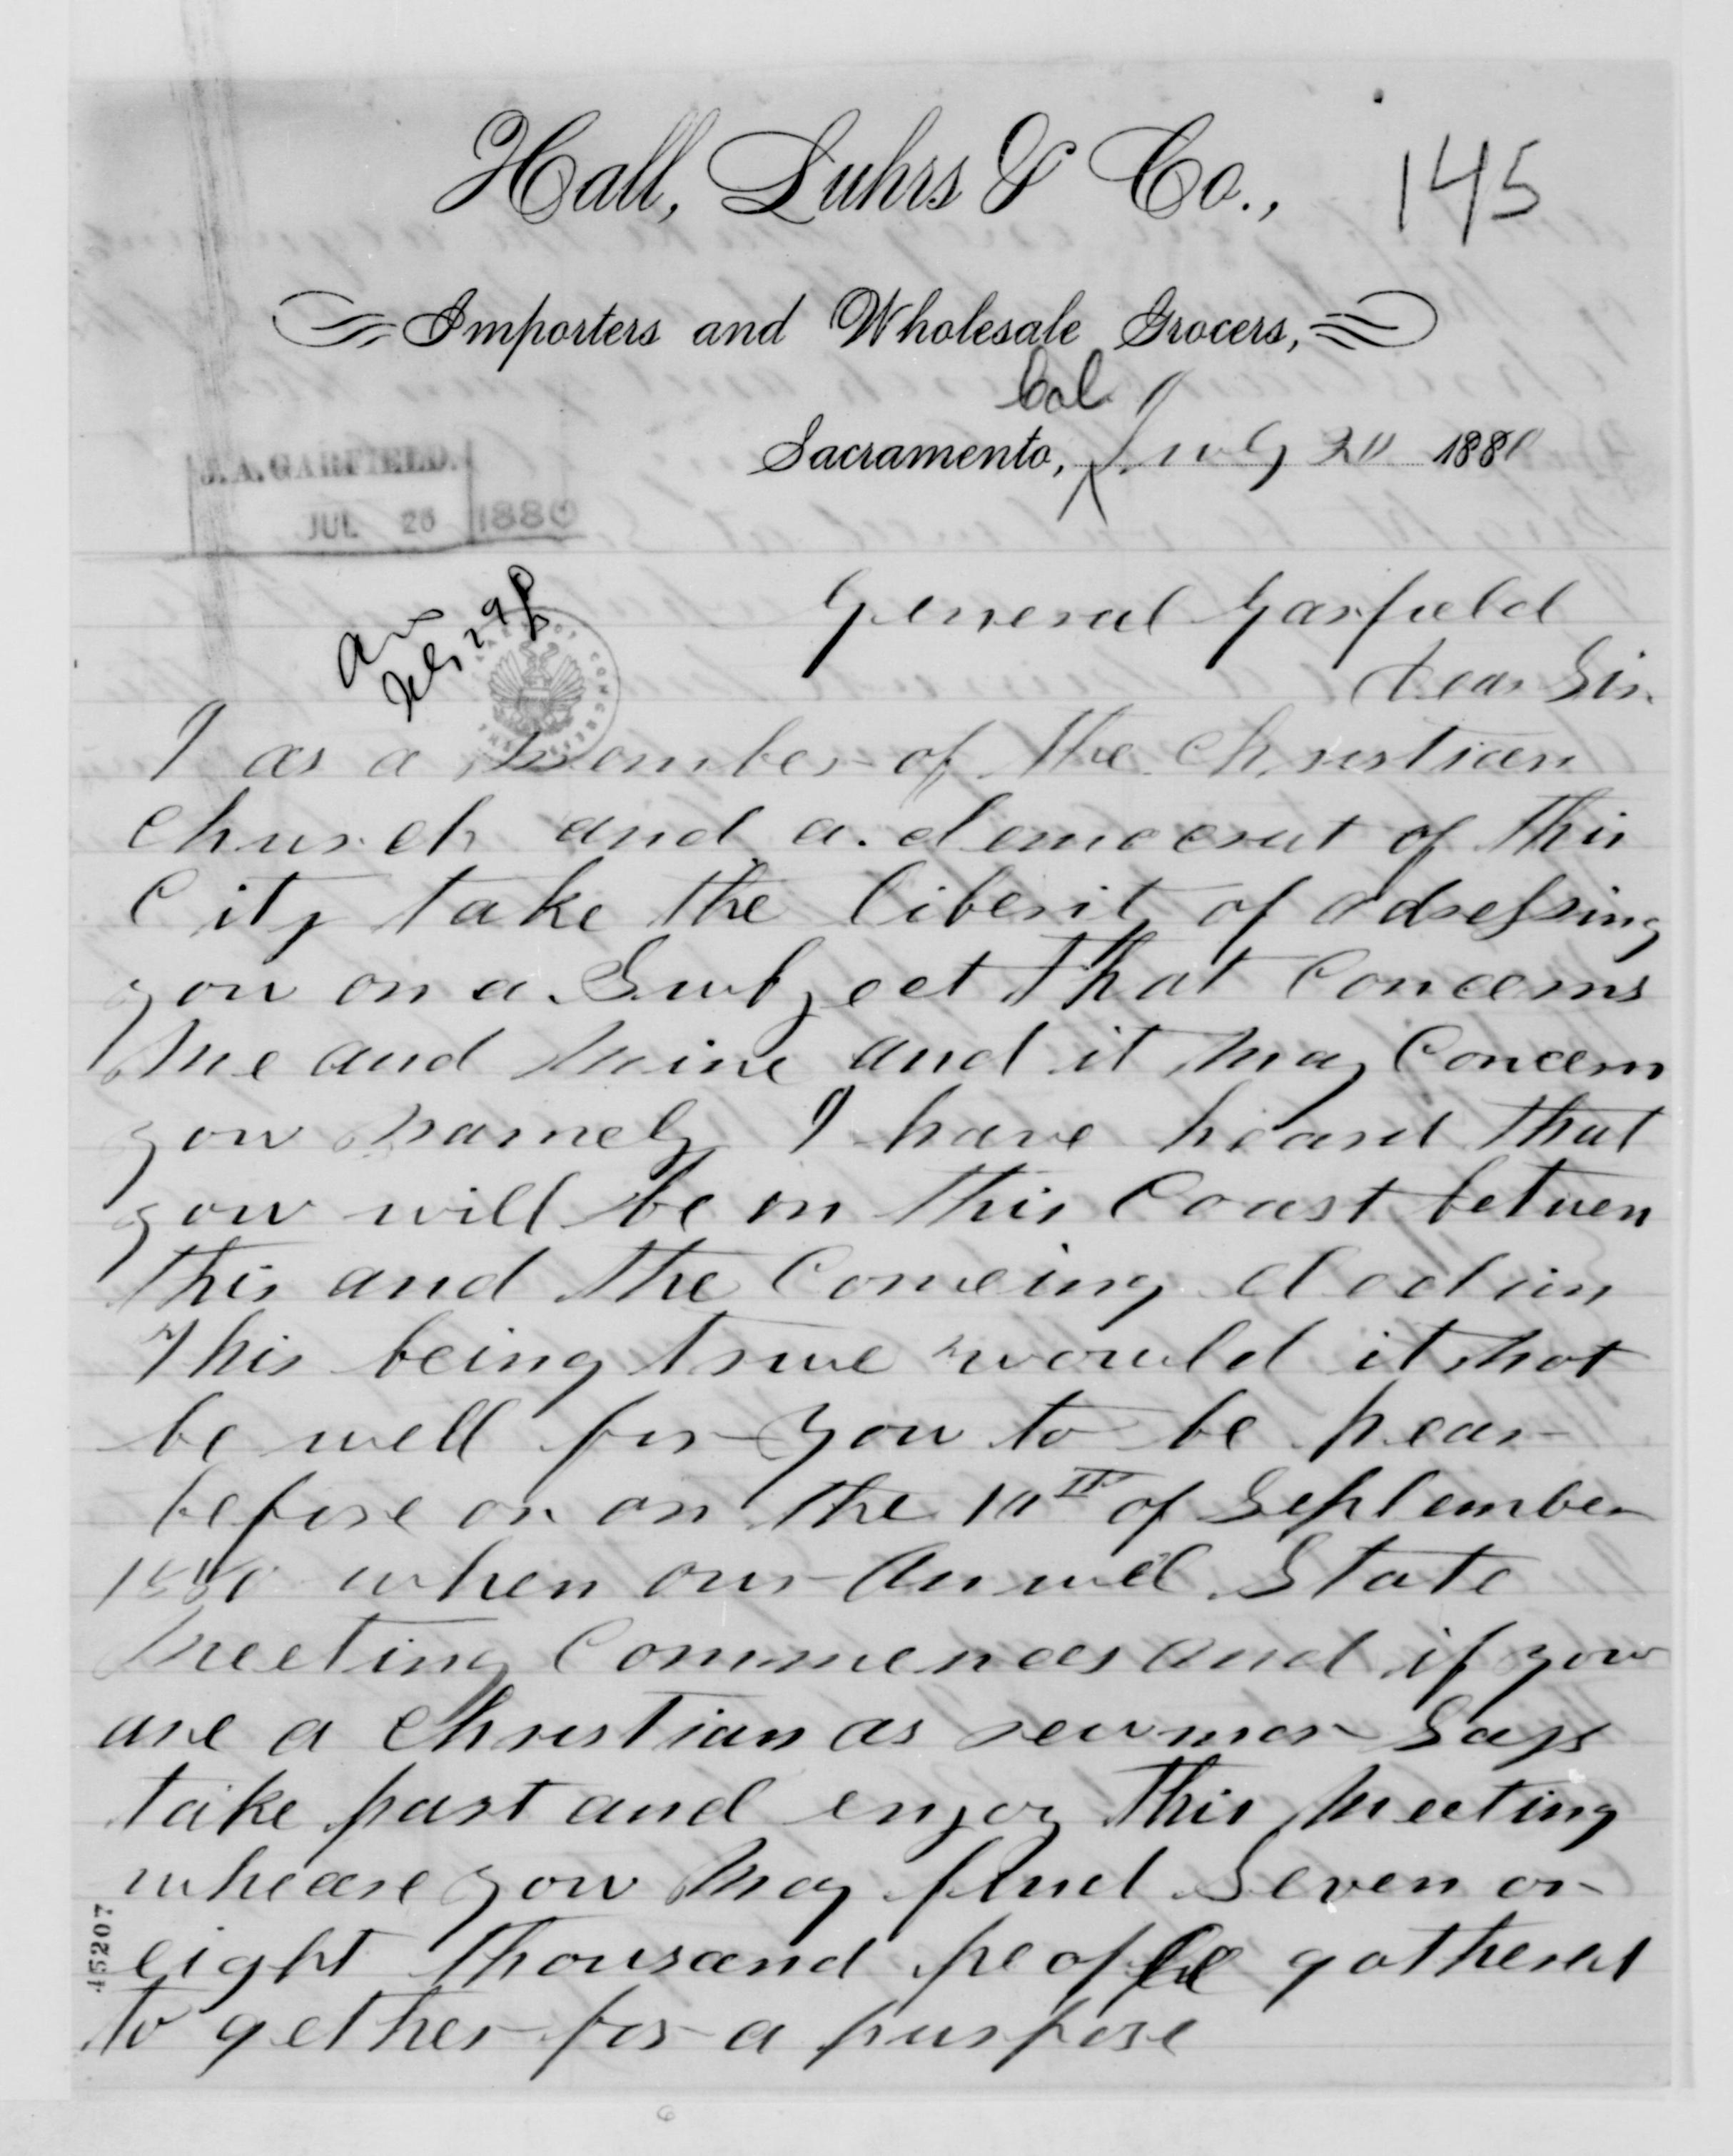 Hall, Luhrs & Co.,
145
Importers and Wholesale Grocers,
Cal
Sacramento, July 20 1880
J. A. GARFIELD.
JUL 26 1880
General Garfield
Dear Sir.
I as a member of the Christian
Church and a democrat of this
City take the liberity of adressing
you on a Subject that Concerns
Me and Mine and it May Concern
you Namely I have heard that
you will be on this Coast betwen
this and the Comeing election
This being true would it not
be well for you to be hear
before or on the 10th of September
1880 when our Anuel State
Meeting Commences and if you
are a Christian as rewmor Says
take part and enjoy this Meeting
wheare you May find Seven or
eight thousand people gathered
to gether for a purpose
45207